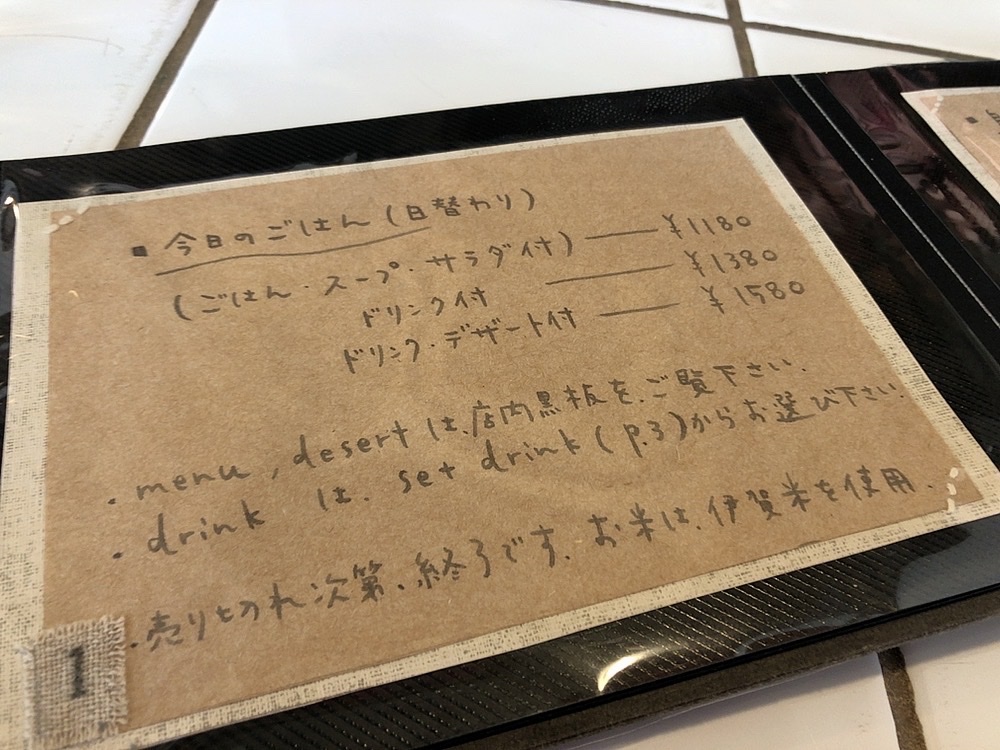 ■ 今日のごはん(日替わり)
(ごはん・スープ・サラダ付) — ¥1180
ドリンク付 — ¥1380
ドリンク・デザート付 — ¥1580
・menu, desert は、店内黒板を、ご覧下さい.
・drink は、set drink (p.3)からお選び下さい.
・売り切れ次第、終了です. お米は、伊賀米を使用.
1